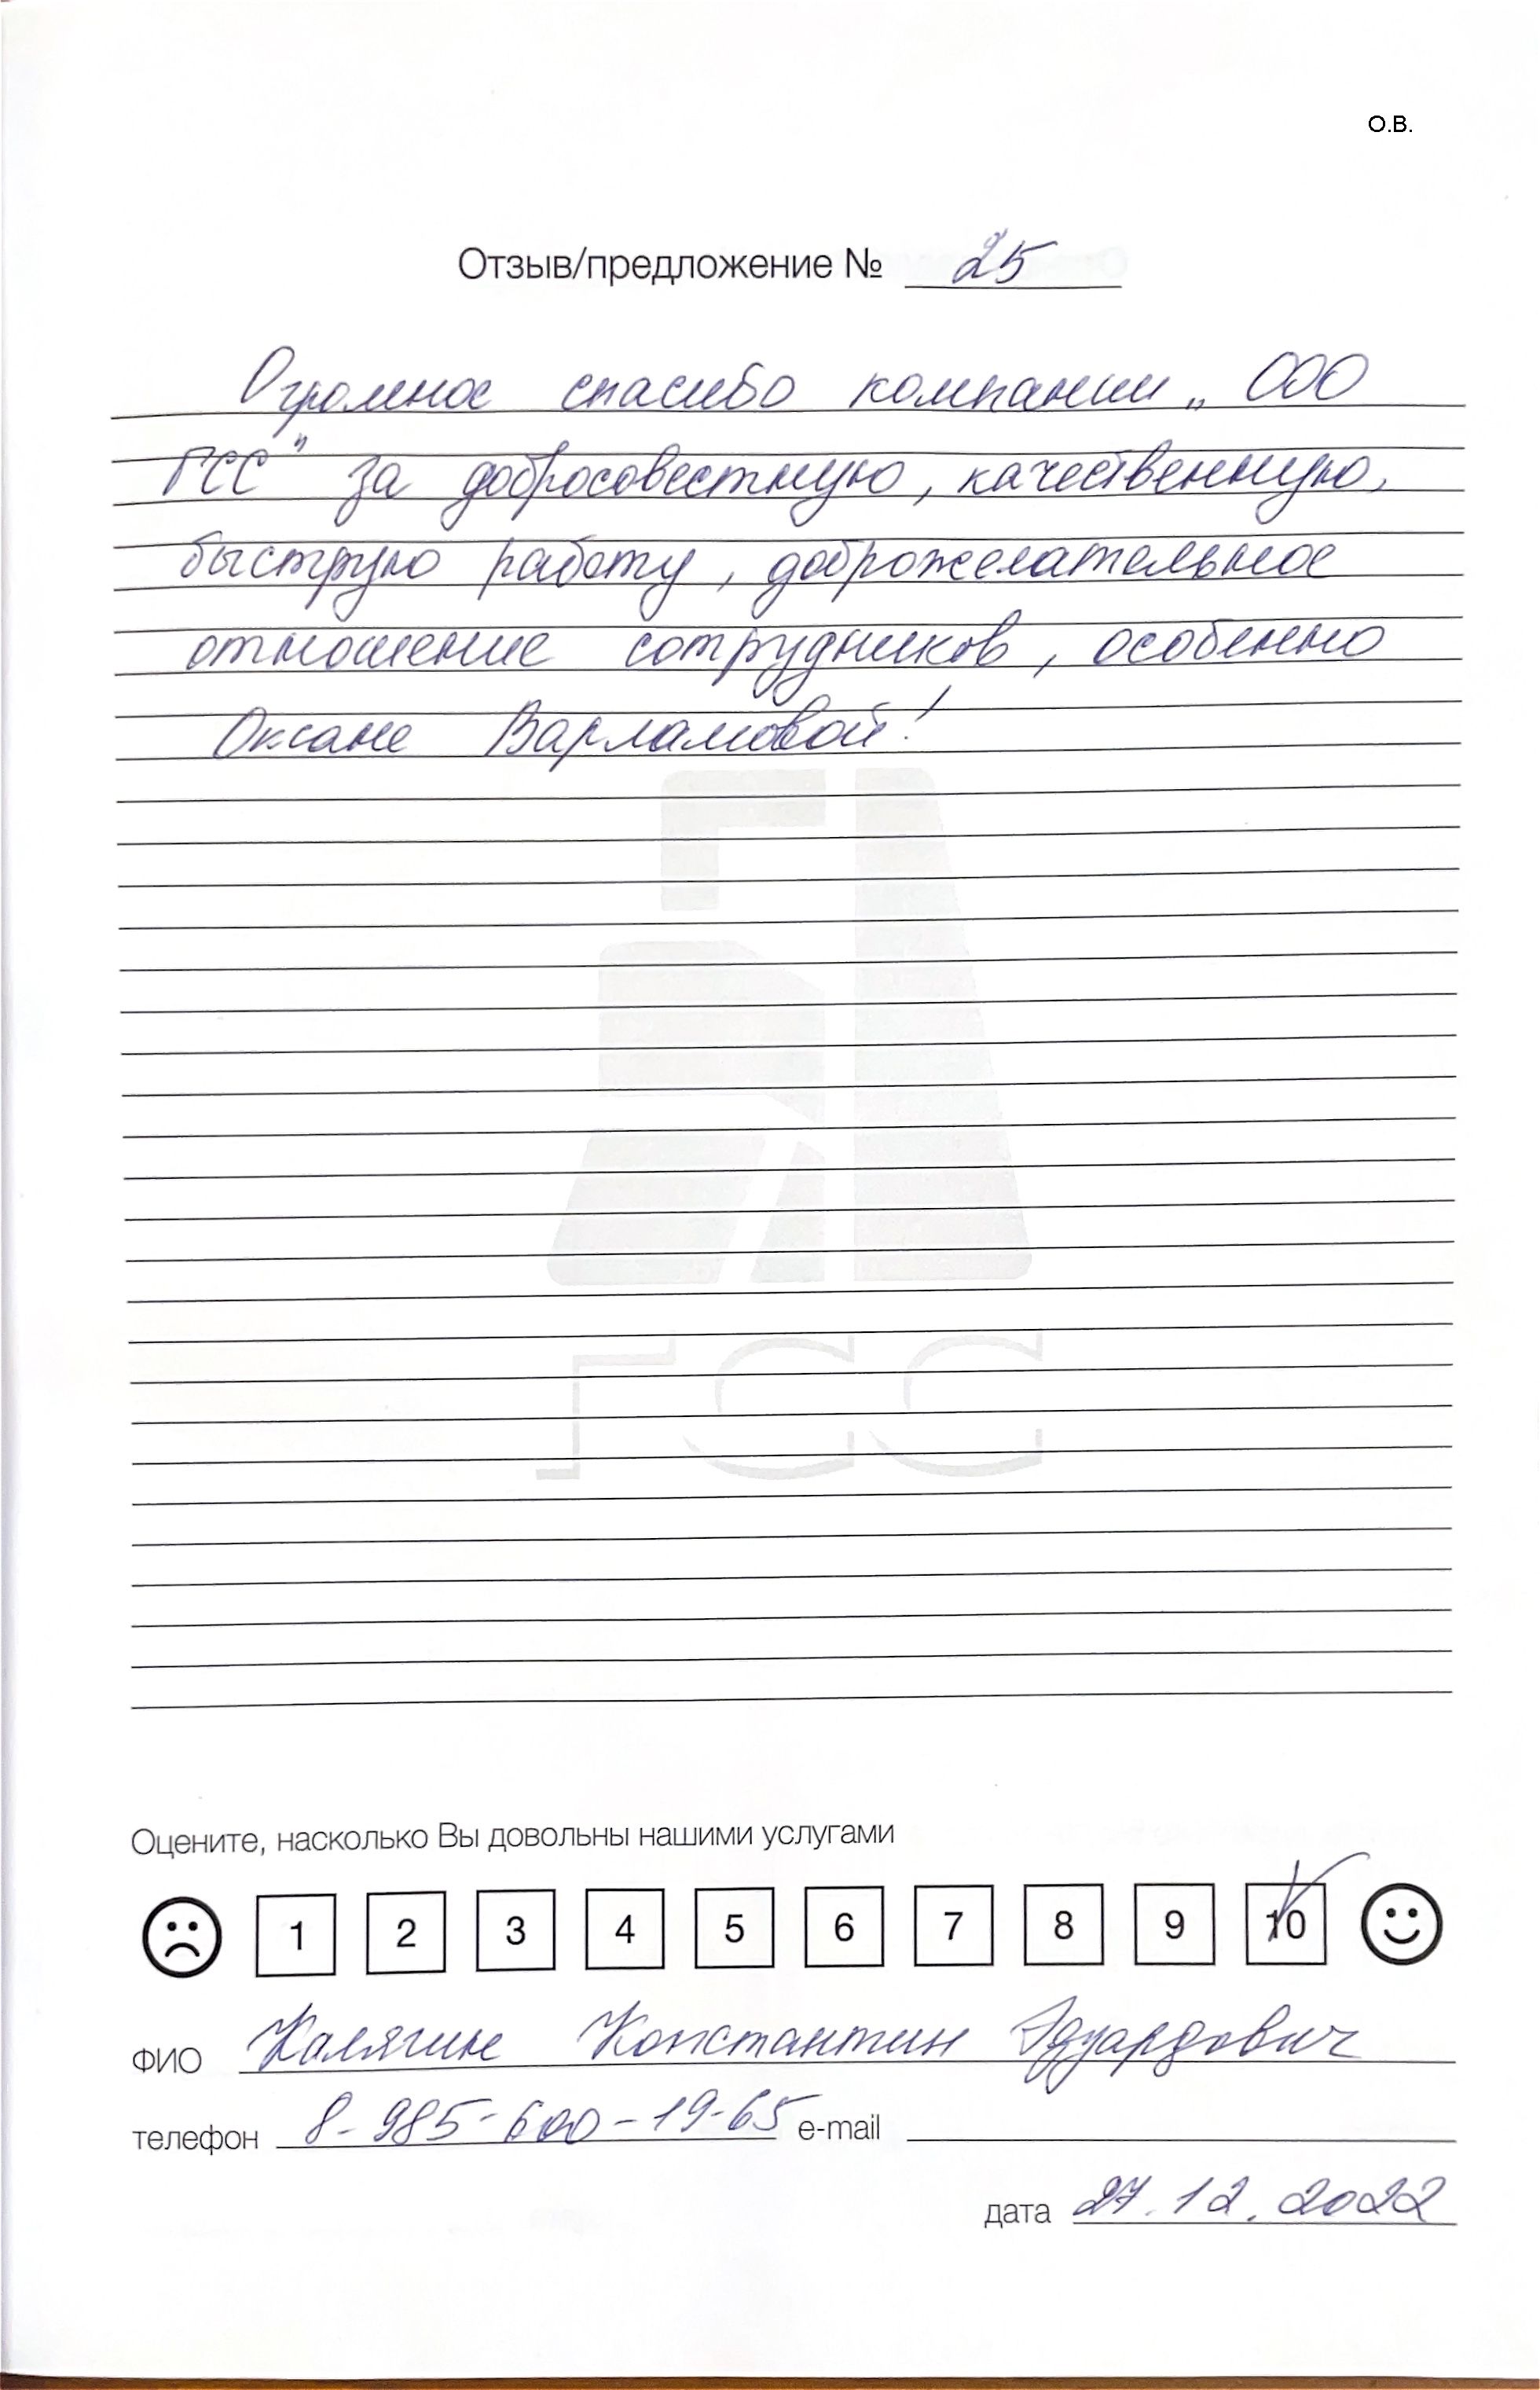 О.В.
Отзыв/предложение № 25
Огромное спасибо компании „ ООО
ГСС" за добросовестную, качественную,
быструю работу, доброжелательное
отношение сотрудников, особенно
Оксане Варламовой!
ГСС
Оцените, насколько Вы довольны нашими услугами
1 2 3 4 5 6 7 8 9 10
ФИО Калягин Константин Эдуардович
телефон 8-985-600-19-65 e-mail
дата 27.12.2022